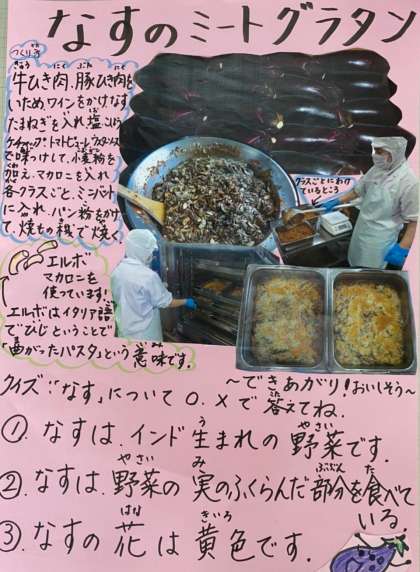 なすのミートグラタン
つくり方
牛ひき肉、豚ひき肉を
いため、ワインをかけなす
たまねぎを入れ、塩、こしょう
ケチャップ・トマトピューレ・ウスターソース
で味つけして、小麦粉を
加え、マカロニを入れ
各クラスごと、ミニバット
に入れ、パン粉をかけ
て、焼もの機で焼く。
クラスごとにわけ
ているところ
エルボ
マカロニを
使っています!
エルボはイタリア語
で「ひじ」ということで
「曲がったパスタ」という意味です。
〜できあがり!おいしそう〜
クイズ!「なす」について○、×で答えてね.
①.なすは、インド生まれの野菜です.
②.なすは、野菜の実のふくらんだ部分を食べて
いる.
③.なすの花は黄色です.